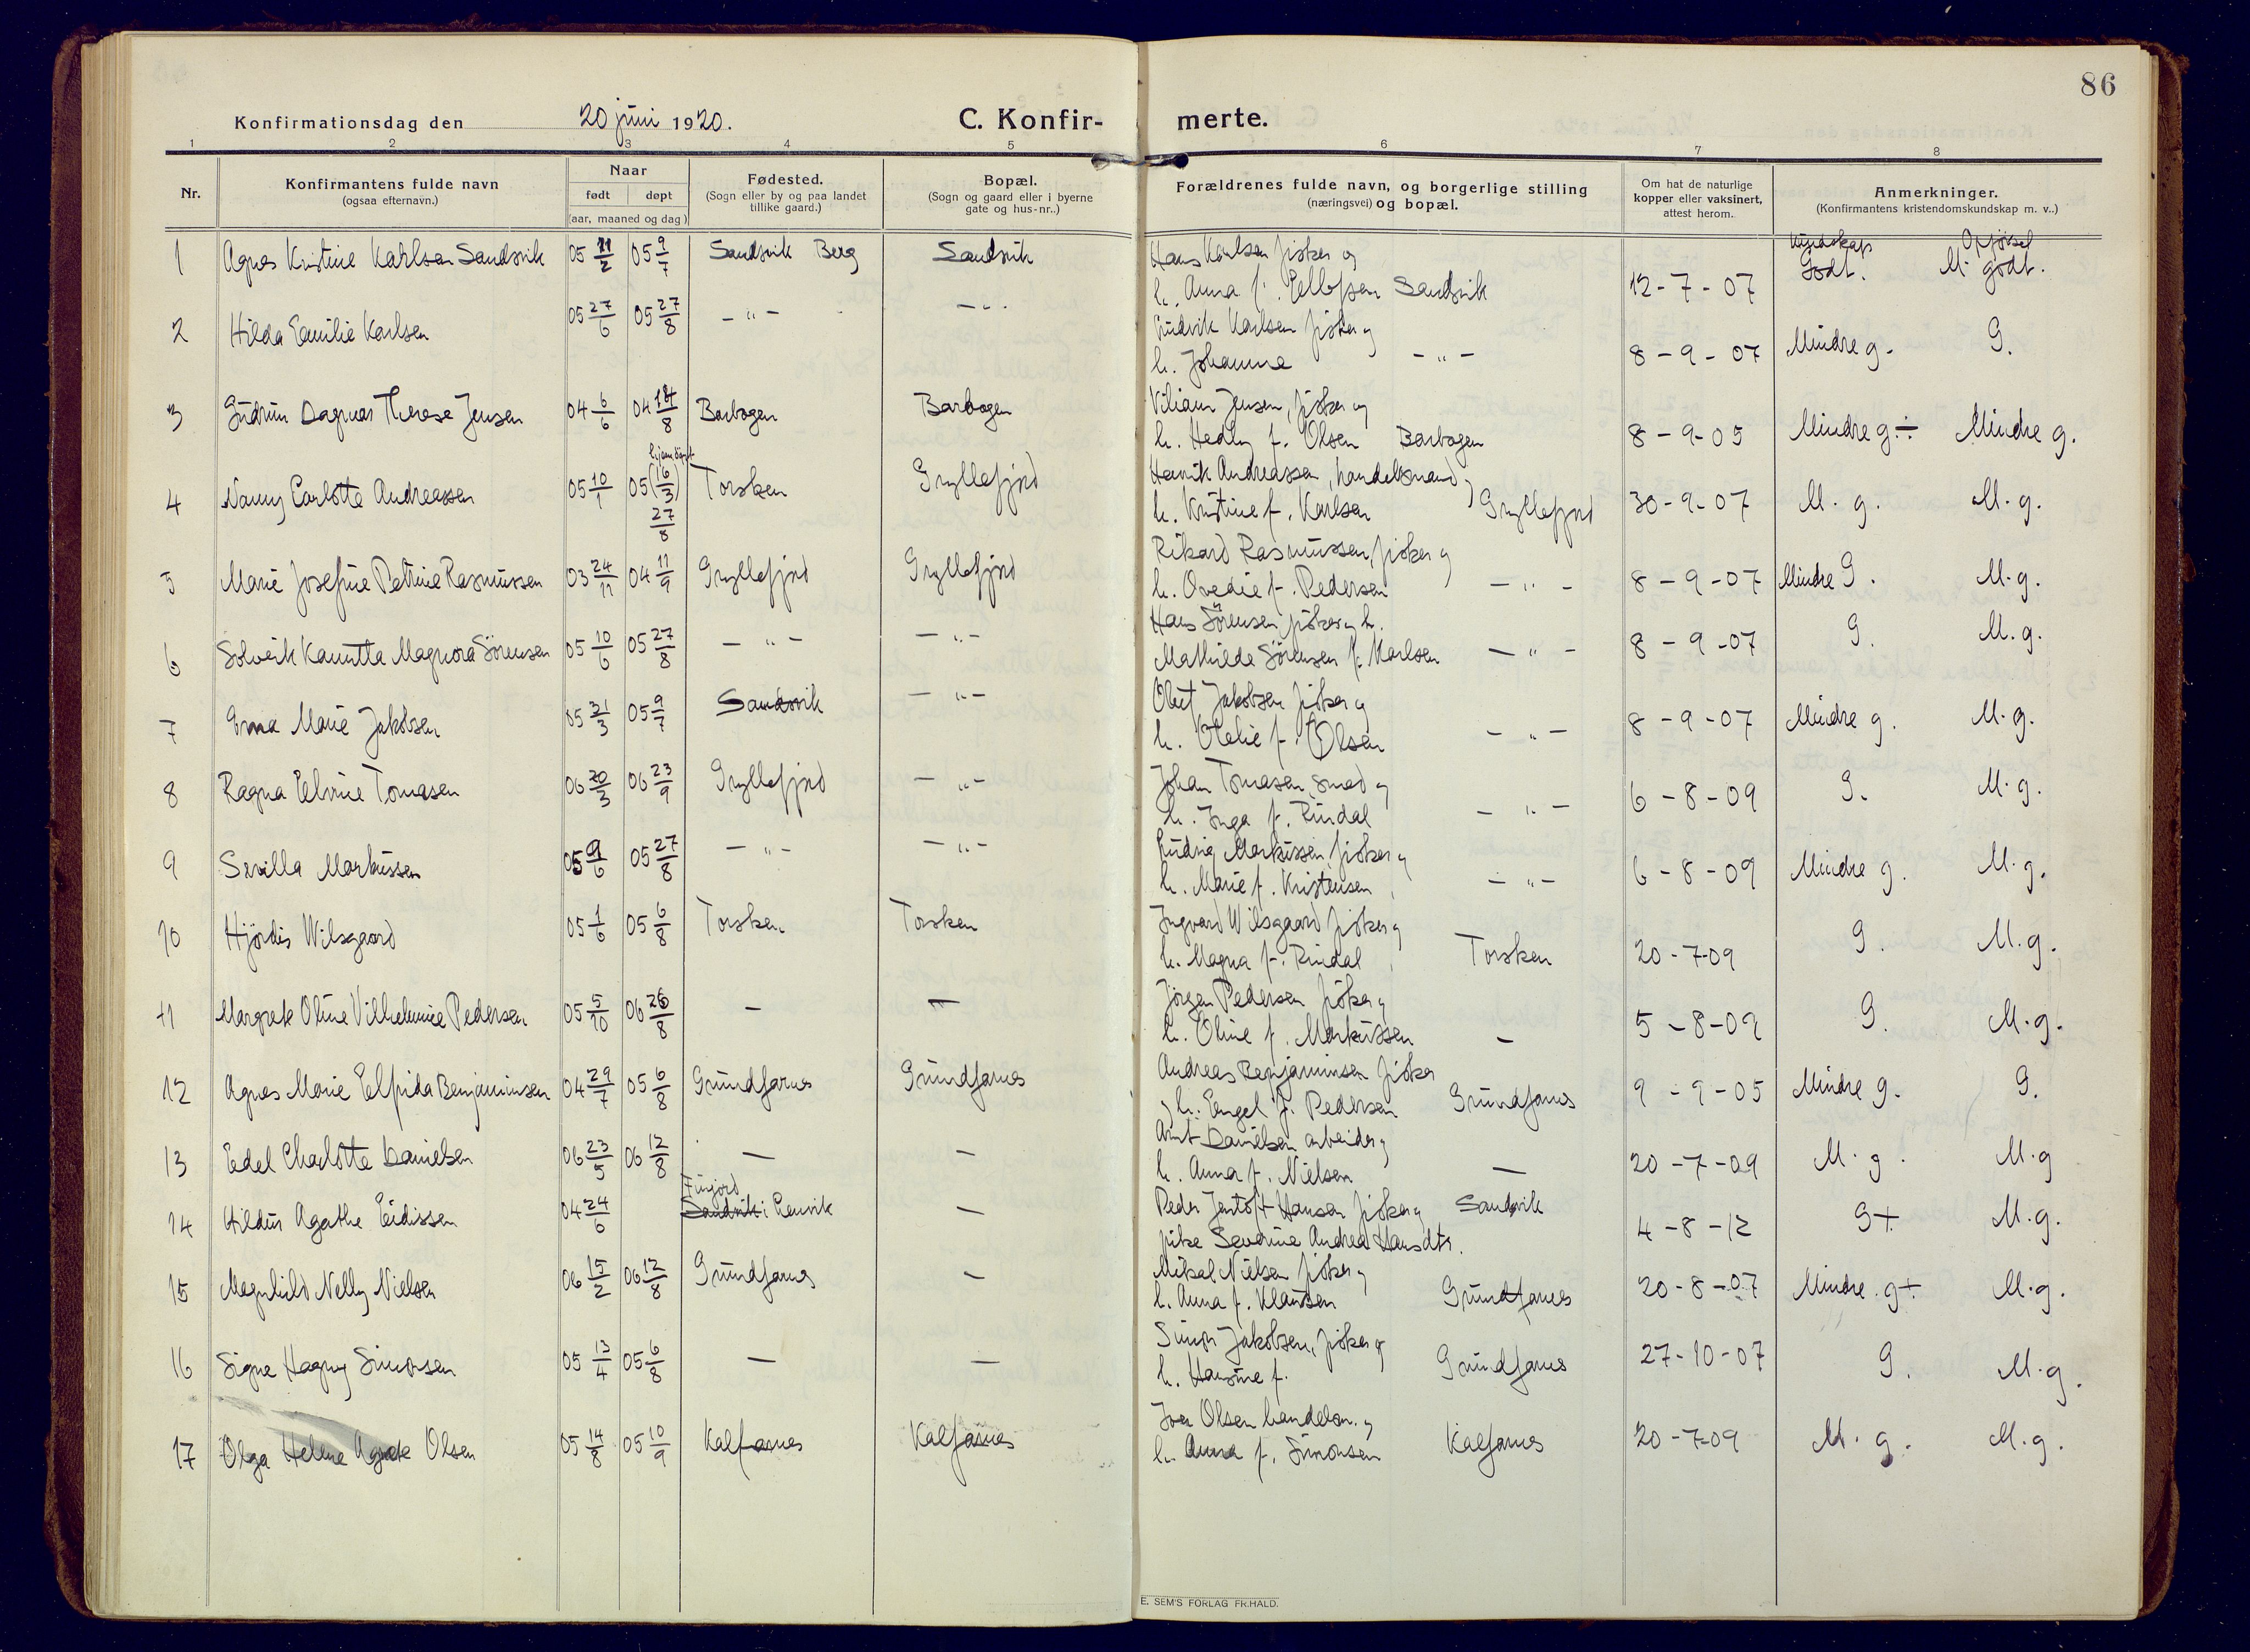 86
Konfirmationsdag den 20 juni 1920. C. Konfir- merte.
1 2 3 4 5 6 7 8
Nr.
Konfirmantens fulde navn
(ogsaa efternavn.)
Naar
født døpt
(aar, maaned og dag)
Fødested.
(Sogn eller by og paa landet
tillike gaard.)
Bopæl.
(Sogn og gaard eller i byerne
gate og hus-nr..)
Forældrenes fulde navn, og borgerlige stilling
(næringsvei) og bopæl.
Om hat de naturlige
kopper eller vaksinert,
attest herom.
Anmerkninger.
(Konfirmantens kristendomskundskap m. v..)
Kundskap Opførsel
1 Agnes Kristine Karlsen Sandsvik 05 11/2 05 9/7 Sandsvik Berg Sandsvik Hans Karlsen fisker og
h. Anna f. Ellefsen Sandsvik 12-7-07 Godt. M. godt.
2 Hilda Emilie Karlsen 05 27/6 05 27/8 -"- -"- Ludvik Karlsen fisker og
h. Johanne -"- 8-9-07 Mindre g. G.
3 Gudrun Dagmar Therese Jensen 04 6/6 04 14/8 Barbogen Barbogen Viliam Jensen, fisker og
h. Hedly f. Olsen Barbogen 8-9-05 Mindre g÷ Mindre g.
4 Nanny Carlotte Andreassen 05 10/1 hjemdøpt 05 (16/3) 27/8 Torsken Gryllefjord Henrik Andreassen, handelsmand,
h. Kristine f. Karlsen Gryllefjord 30-9-07 M. g. M. g.
5 Marie Josefine Petrine Rasmussen 03 24/11 04 11/9 Gryllefjord Gryllefjord Rikard Rasmussen, fisker og
h. Ovedie f. Pedersen -"- 8-9-07 Mindre G. M. g.
6 Solveik Kamitta Magnora Sörensen 05 10/6 05 27/8 -"- -"- Hans Sörensen fisker og h.
Mathilde Sörensen f. Karlsen -"- 8-9-07 G. M. g.
7 Erna Marie Jakobsen 05 31/3 05 9/7 Sandsvik -"- Olut Jakobsen fisker og
h. Otelie f. Olsen -"- 8-9-07 Mindre g. M. g.
8 Ragna Elvine Tomasen 06 20/3 06 23/9 Gryllefjord -"- Johan Tomasen, smed og
h. Inga f. Rindal -"- 6-8-09 G. M. g.
9 Sevilla Markussen 05 9/6 05 27/8 -"- -"- Ludvig Markussen fisker og
h. Marie f. Kristensen -"- 6-8-09 Mindre g. M. g.
10 Hjördis Wilsgaard 05 1/6 05 6/8 Torsken Torsken Ingvard Wilsgaard fisker og
h. Magna f. Rindal Torsken 20-7-09 G. M. g.
11 Margrete Oline Vilhelmine Pedersen 05 5/10 06 26/8 - - Jörgen Pedersen fisker og
h. Oline f. Markussen - 5-8-09 G. M. g.
12 Agnes Marie Elfrida Benjaminsen 04 29/7 05 6/8 Grundfarnes Grundfarnes Andreas Benjaminsen fisker
og h. Engel f. Pedersen Grundfarnes 9-9-05 Mindre g. G.
13 Edel Charlotte Danielsen 06 23/5 06 12/8 - - Arnt Danielsen arbeider og
h. Anna f. Nielsen - 20-7-09 M. g. M. g
14 Hildur Agathe Eidissen 04 24/6 Finjord
Sandvik i Lenvik - Peder Jentoft Hansen fisker og Sandvik
pike Severine Andrea Hansdtr. 4-8-12 G+ M. g.
15 Magnhild Nelly Nielsen 06 15/2 06 12/8 Grundfarnes - Mikal Nielsen fisker og
h. Anna f. Klausen Grundfarnes 20-8-07 Mindre g+ M. g.
16 Signe Hagny Simonsen 05 13/4 05 6/8 - - Simon Jakobsen, fisker og
h. Hansine f. Grundfarnes 27-10-07 G. M. g.
17 Olga Helene Agnete Olsen 05 14/8 05 10/9 Kalfarnes Kalfarnes Iver Olsen handelsm. og
h. Anna f. Simonsen Kalfarnes 20-7-09 M. g. M. g.
E. SEM'S FORLAG FR.HALD.